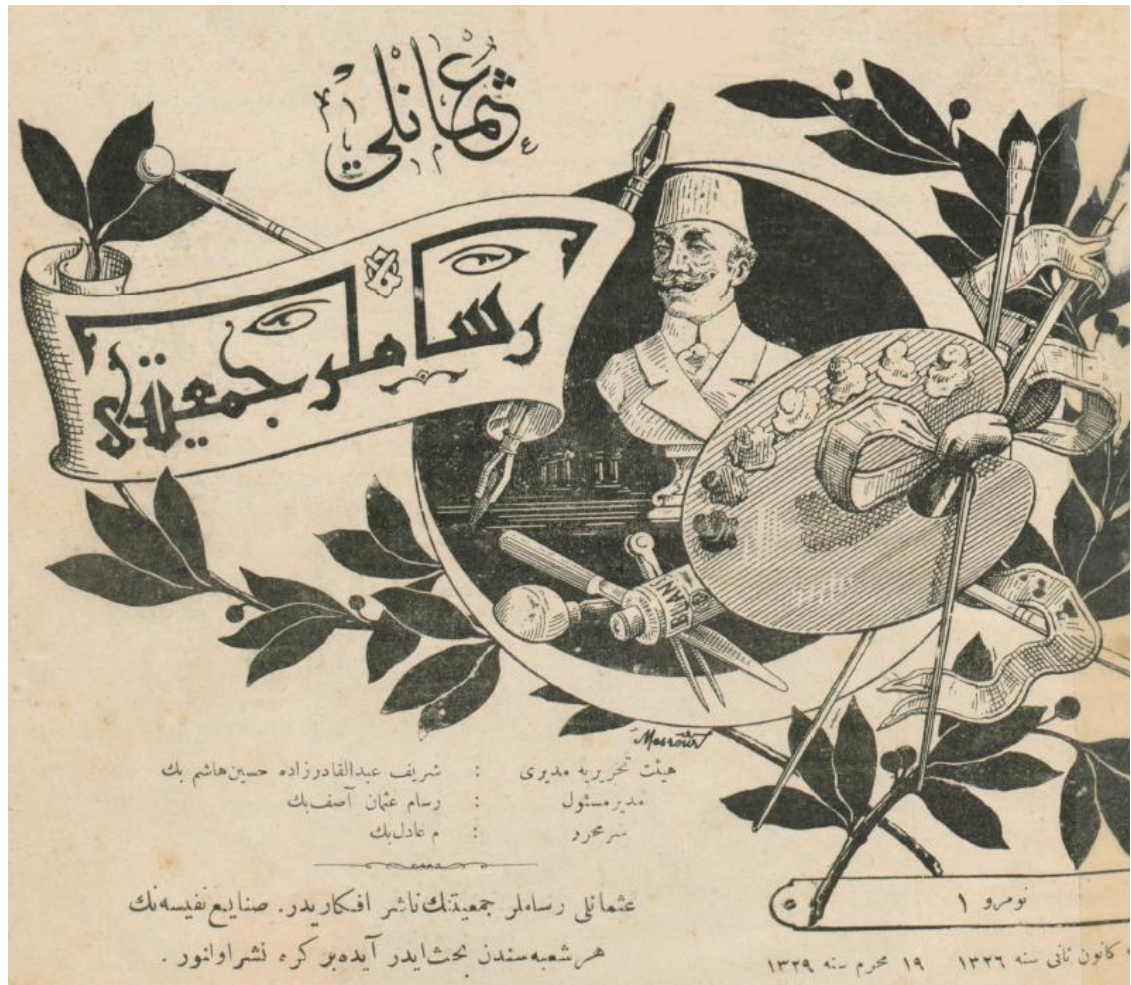 عثمانلی
رسّاملر جمعیتی
BLAN
Mesrour
هیئت تحریریه مدیری : شریف عبدالقادرزاده حسین هاشم بك
مدیر مسئول : رسام عثمان آصف بك
سر محرر : م عادل بك
عثمانلی رساملر جمعیتنك ناشر افكاریدر. صنایع نفیسه نك
هر شعبه سندن بحث ایدر آیده بر كره نشر اولنور .
نومرو ۱
كانون ثانی سنه ۱۳۲۶ ۱۹ محرم سنه ۱۳۲۹